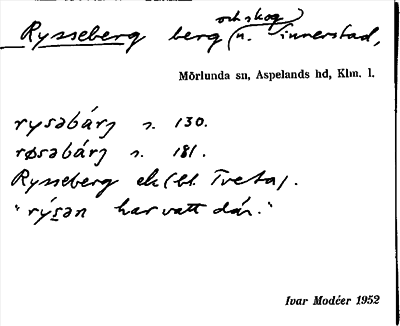 och skog
Rysseberg berg n. innerstad,
Mörlunda sn, Aspelands hd, Klm. l.
rysəbárj s. 130.
røsəbárj s. 181.
Rysseberg ek (bl. Tveta).
"rýsən har vatt dár."
Ivar Modéer 1952